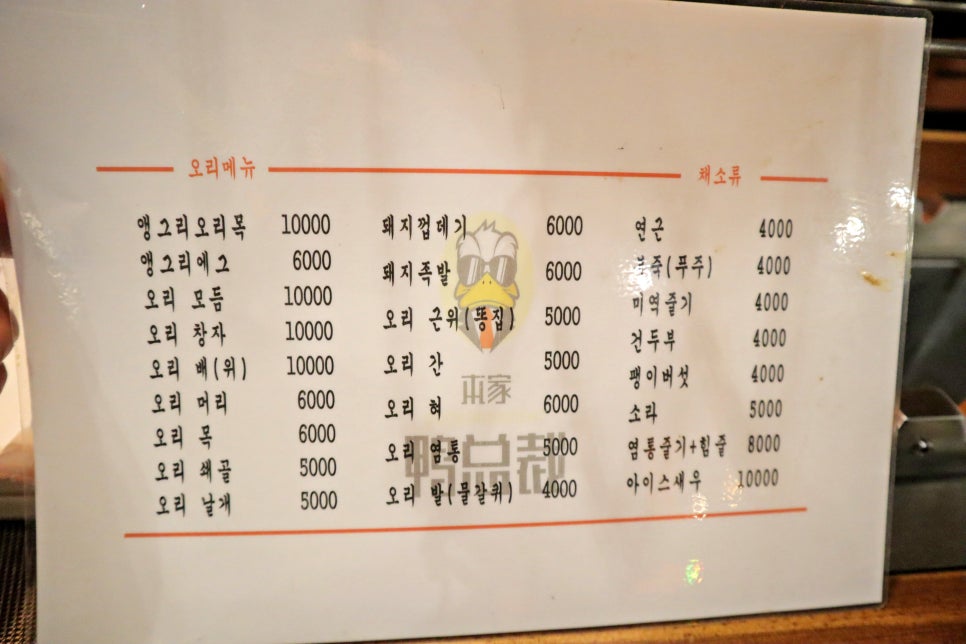 오리메뉴
앵그리오리목 10000
앵그리에그 6000
오리 모듬 10000
오리 창자 10000
오리 배(위) 10000
오리 머리 6000
오리 목 6000
오리 쇄골 5000
오리 날개 5000
돼지껍데기 6000
돼지족발 6000
오리 근위(똥집) 5000
오리 간 5000
오리 혀 6000
오리 염통 5000
오리 발(물갈퀴) 4000
채소류
연근 4000
(푸주) 4000
미역줄기 4000
건두부 4000
팽이버섯 4000
소라 5000
염통줄기+힘줄 8000
아이스새우 10000
本家
鸭总裁